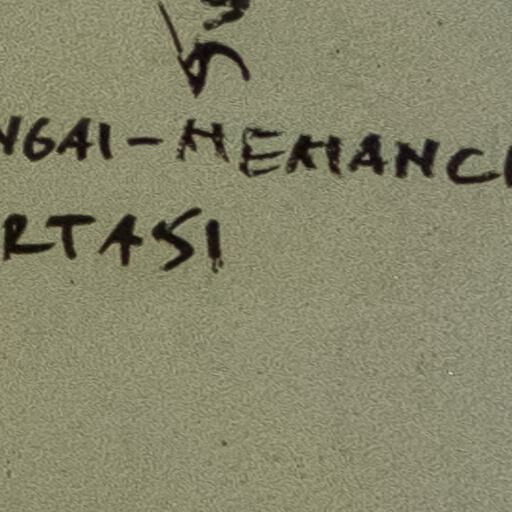 NGAI-MEMANCI
RTASI